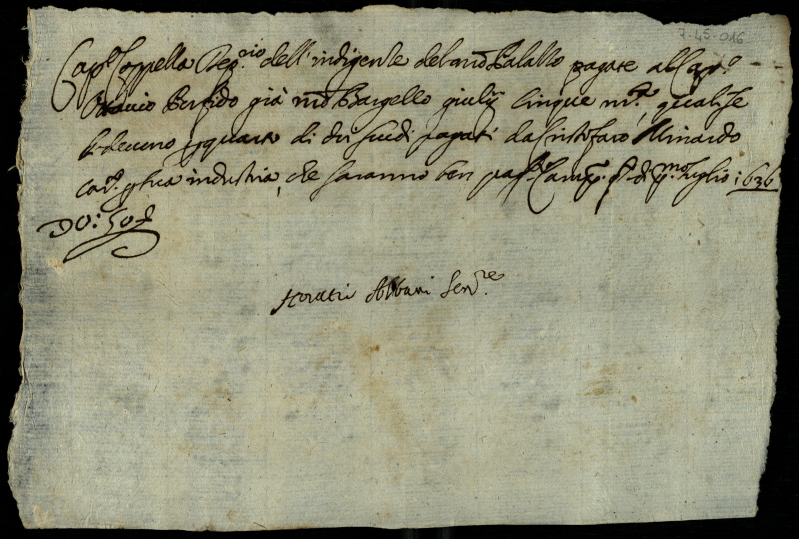 7-45-016
Cap.º Coppella Dep.rio dell'indigente del nrõ Palazzo pagate al Cap.º
Ottavio Perfido già nrõ Bargello giulij cinque m.ta, quali se
li devono quarto di dui scudi pagati da Cristofaro Minardo
car.º sua industria, che saranno ben pag.ti Camp.º p.º di p.mo luglio 1636
DV: 50
Horatii Abbani Ser.re